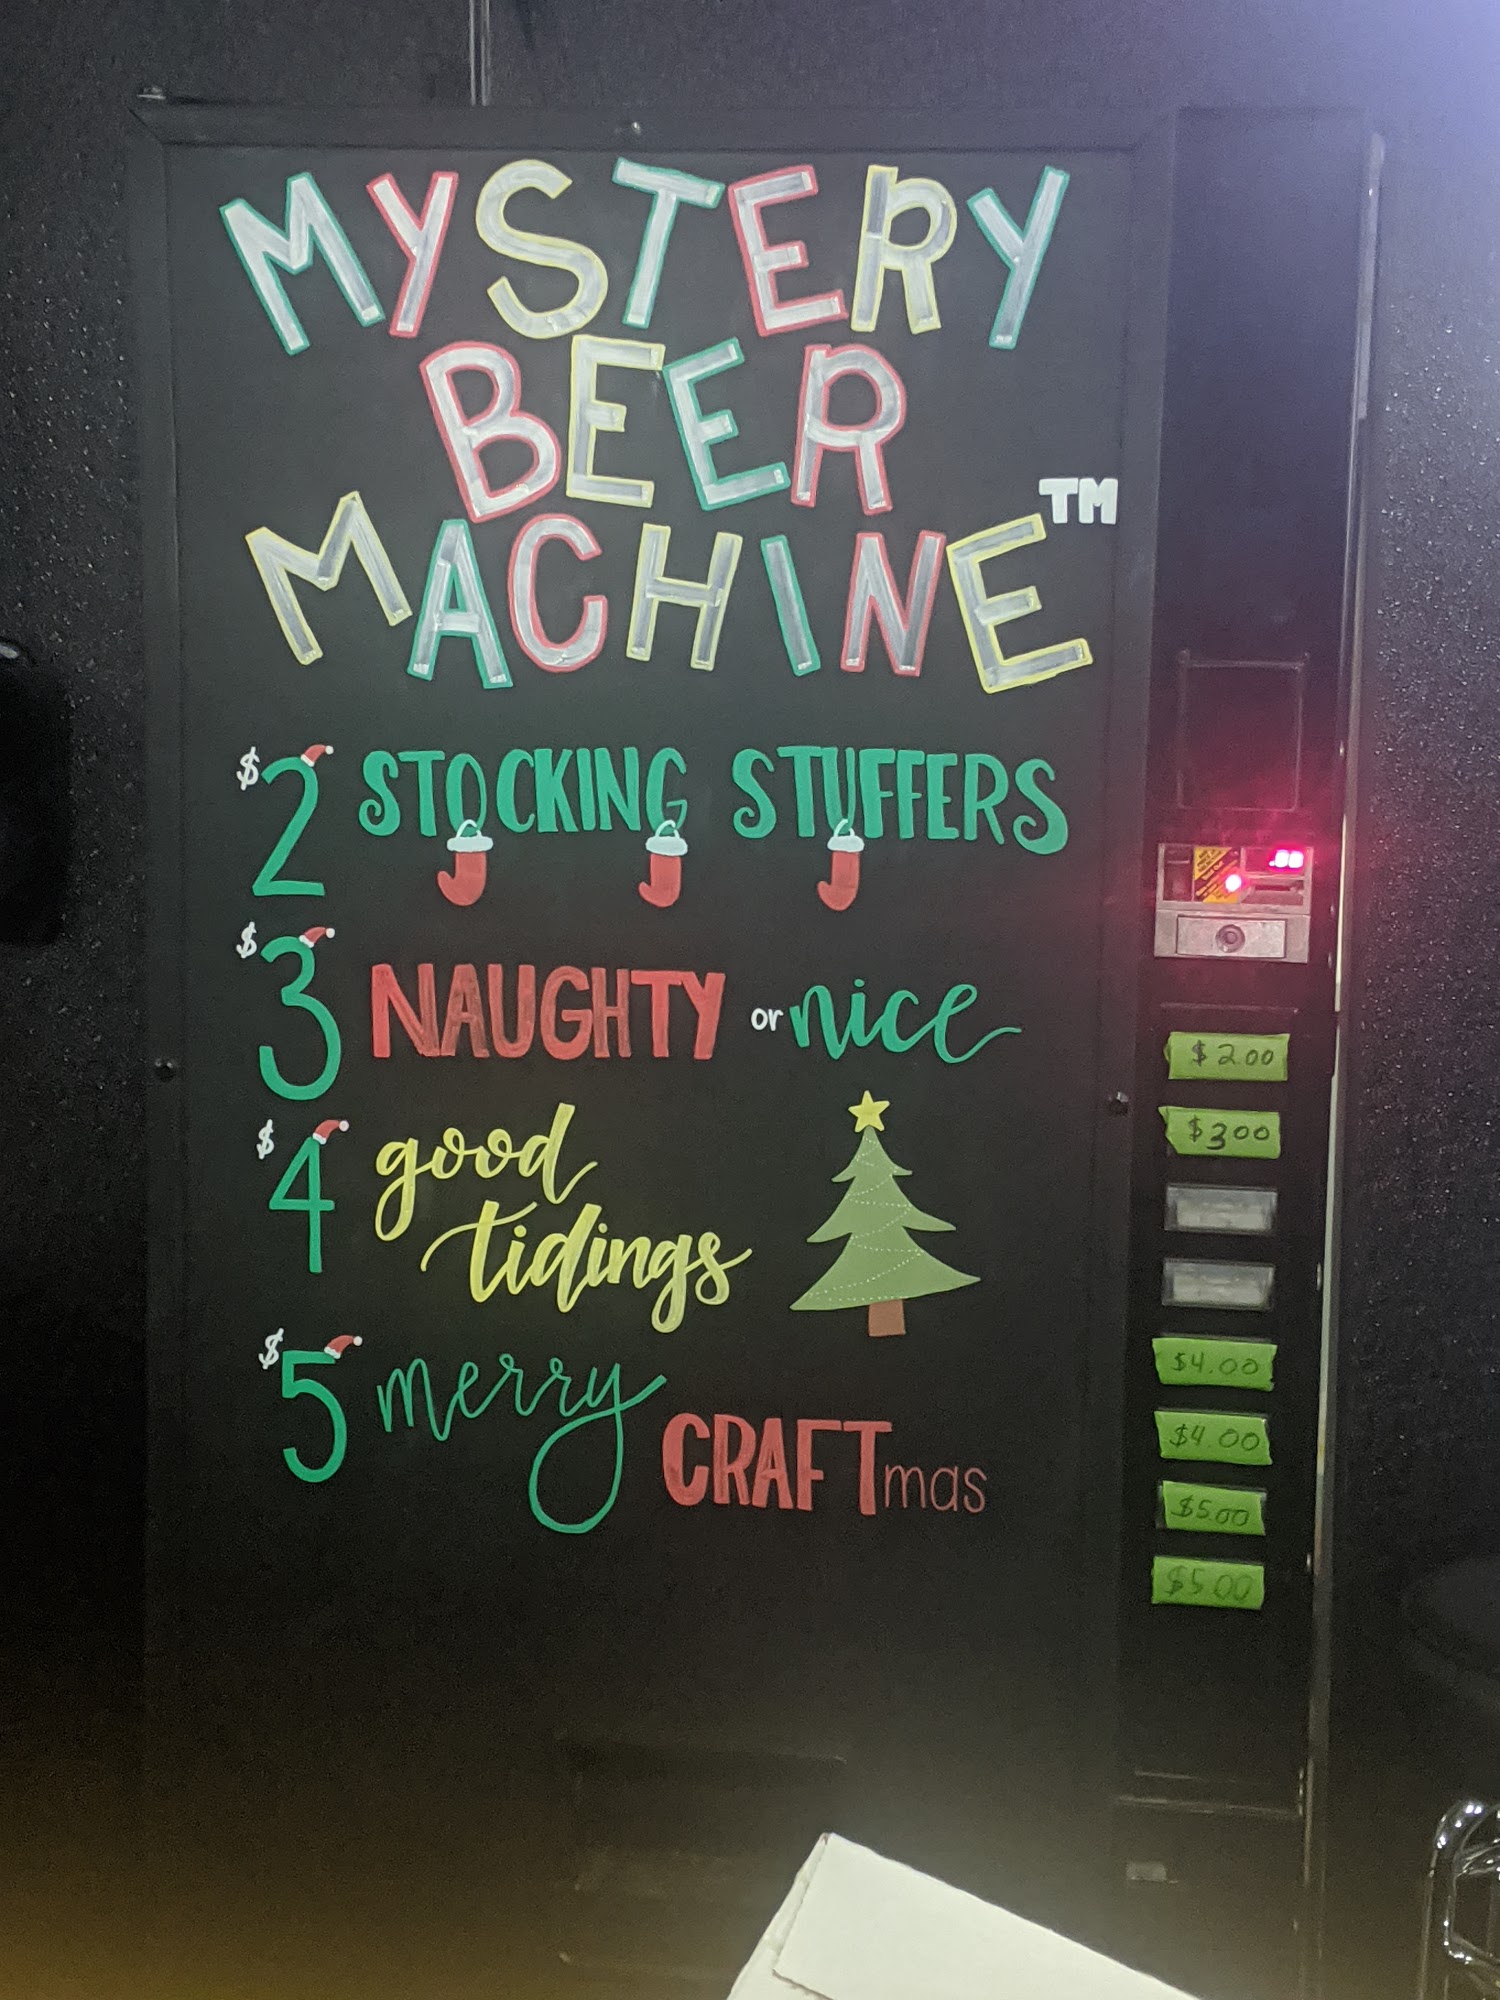 MYSTERY
BEER
MACHINE™
$2 STOCKING STUFFERS
$3 NAUGHTY or nice
$4 good
tidings
$5 merry
CRAFTmas
$2.00
$3.00
$4.00
$4.00
$5.00
$5.00